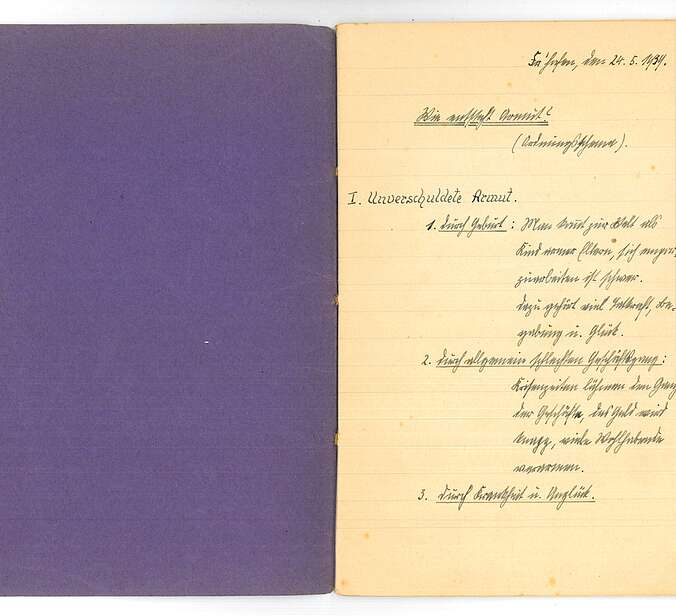 den 24. 5. 1939.
Wie entsteht Armut?
(Ordnungsschema).
I. Unverschuldete Armut.
1. durch Geburt: Man kommt zur Welt als
Kind armer Eltern, sich empor-
zuarbeiten ist schwer.
Dazu gehört viel Tatkraft, Be-
gabung u. Glück.
2. durch allgemein schlechten Geschäftsgang:
Krisenzeiten lähmen den Gang
der Geschäfte, das Geld wird
knapp, viele Wohlhabende
verarmen.
3. durch Krankheit u. Unglück.